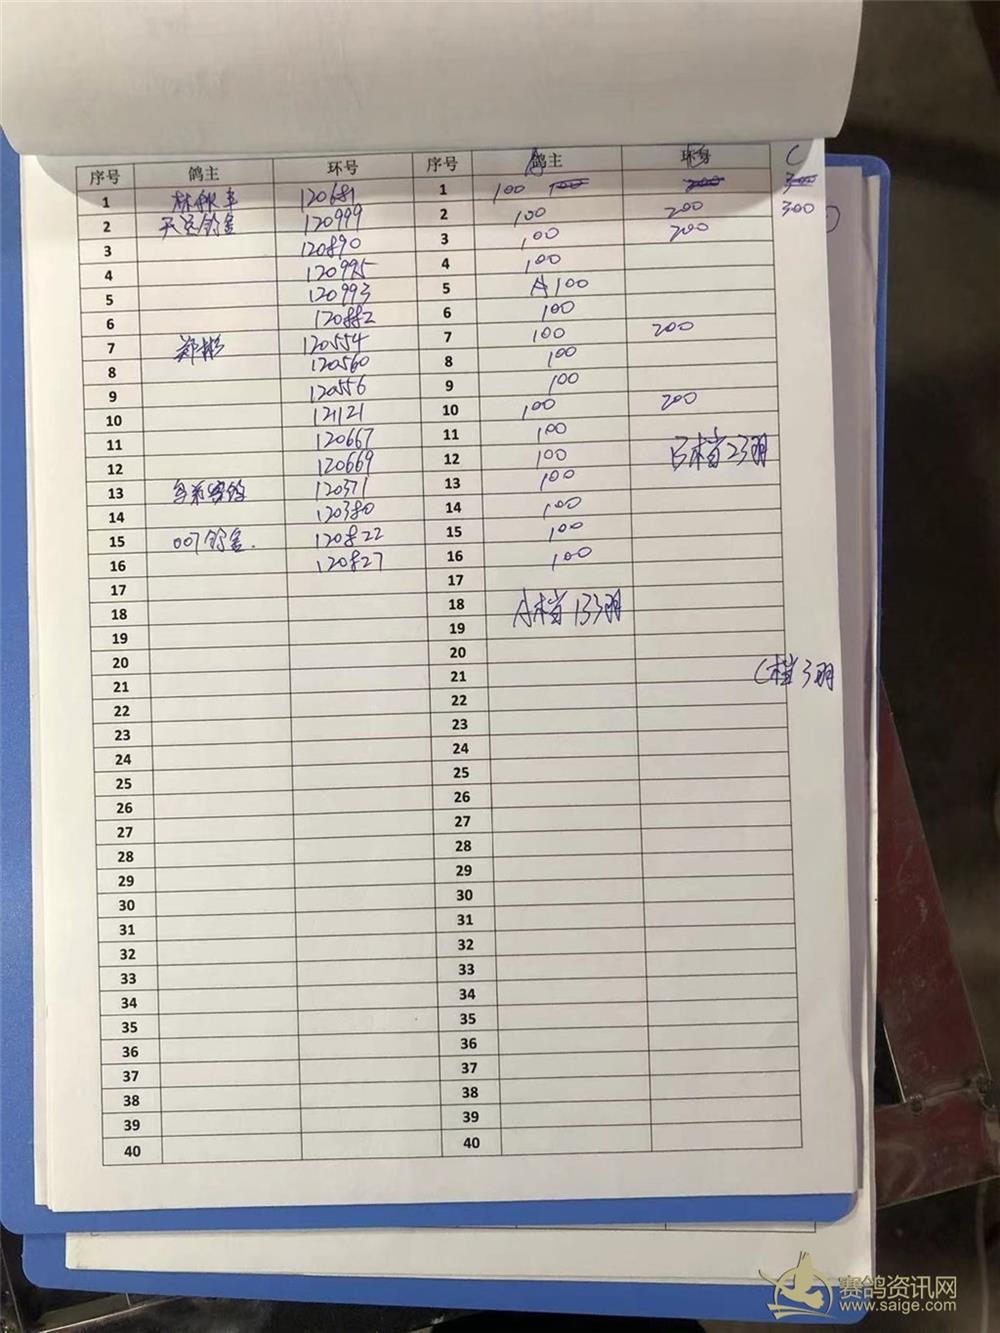 序号 鸽主 环号 序号 鸽主 A 环号 B C
1 120681 1 100 100 200 300
2 天运鸽舍 120999 2 100 200 300
3 120890 3 100 200
4 120995 4 100
5 120993 5 A 100
6 120882 6 100
7 郑彬 120554 7 100 200
8 120560 8 100
9 120556 9 100
10 121121 10 100 200
11 120667 11 100
12 120669 12 100 B档23羽
13 120371 13 100
14 120380 14 100
15 007鸽舍. 120822 15 100
16 120827 16 100
17 17
18 18 A档133羽
19 19
20 20
21 21 C档3羽
22 22
23 23
24 24
25 25
26 26
27 27
28 28
29 29
30 30
31 31
32 32
33 33
34 34
35 35
36 36
37 37
38 38
39 39
40 40
赛鸽资讯网
www.saige.com